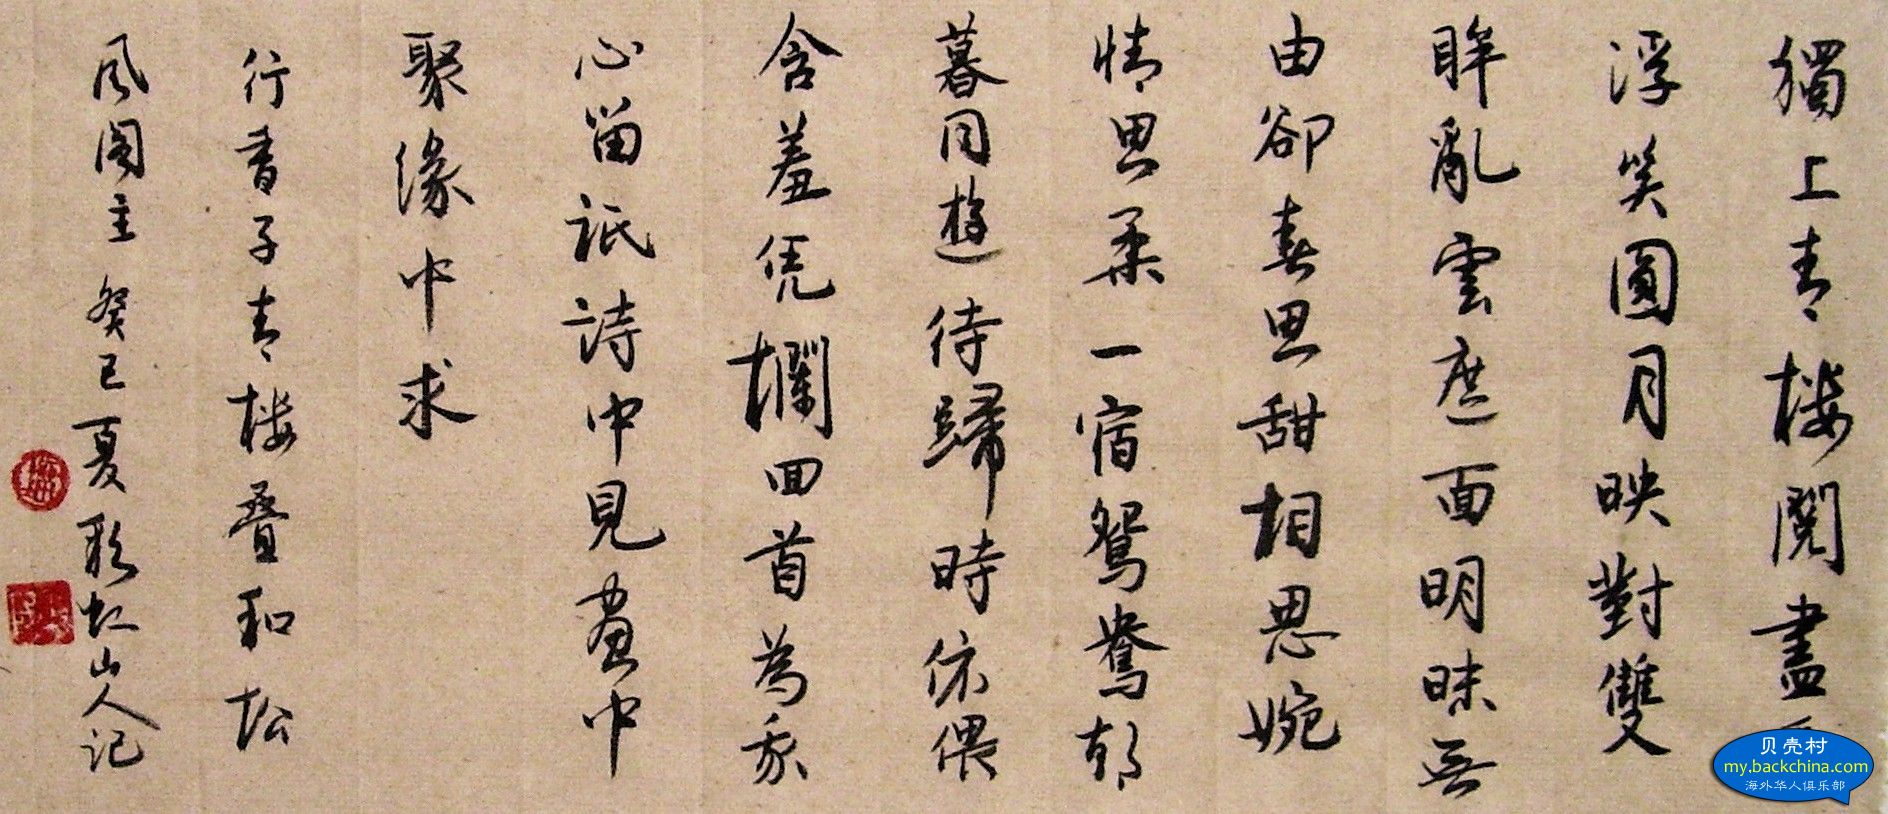 獨上青樓閱盡
浮笑圓月映對雙
眸亂雲遮面明昧無
由卻春思甜相思婉
情思柔一宿鴛鴦朝
暮同遊待歸時依偎
含羞凭欄回首為我
心留祇詩中見畫中
聚緣中求
行書子青樓疊和松
风阁主癸巳夏彩虹山人记
贝壳村
my.backchina.com
海外华人俱乐部